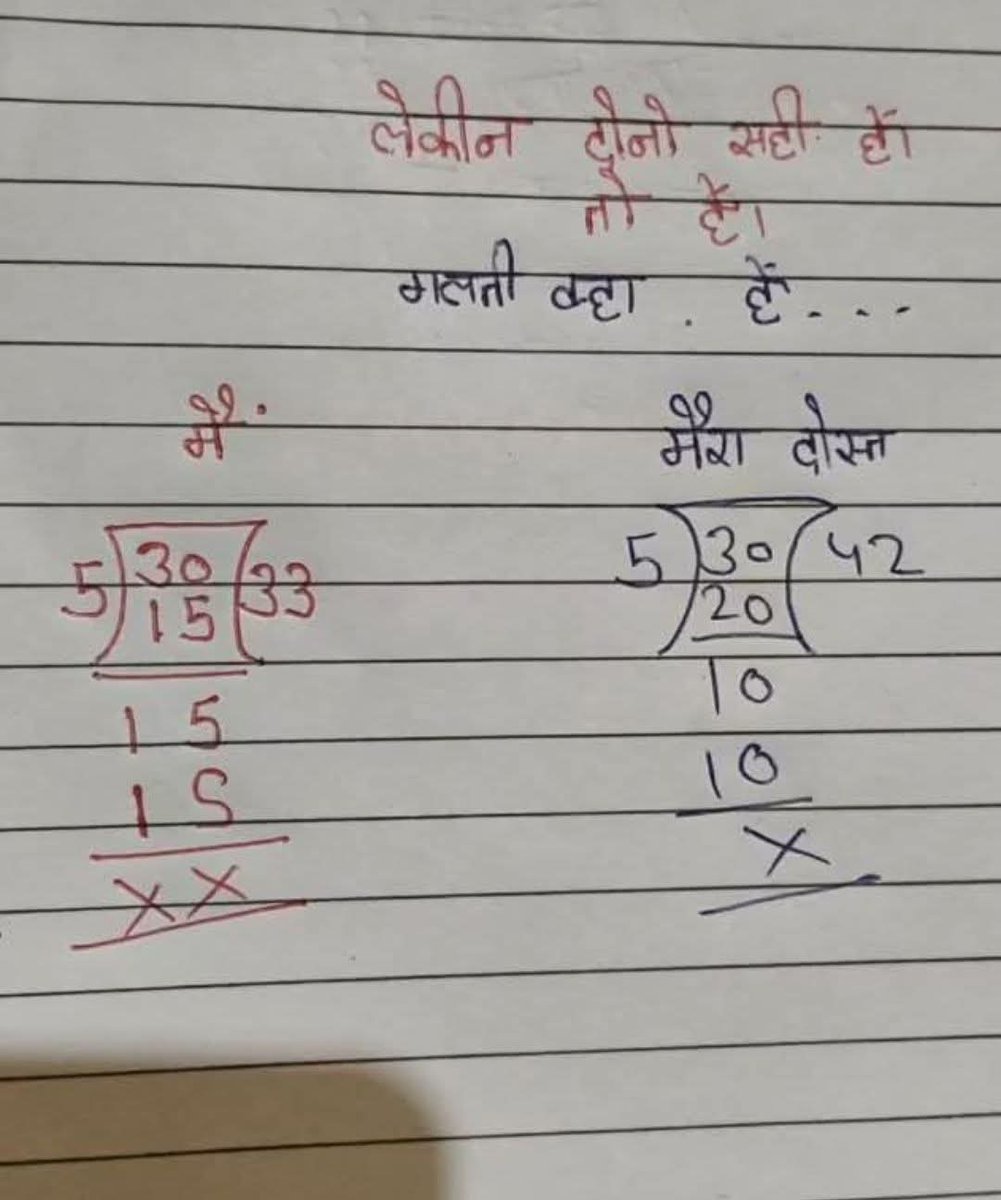 लेकीन दोनो सही हैं।
तो हैं।
गलती कहा . हैं....
मैं
मैरा दोस्त
5 30 33
15
15
15
××
5 30 42
20
10
10
×